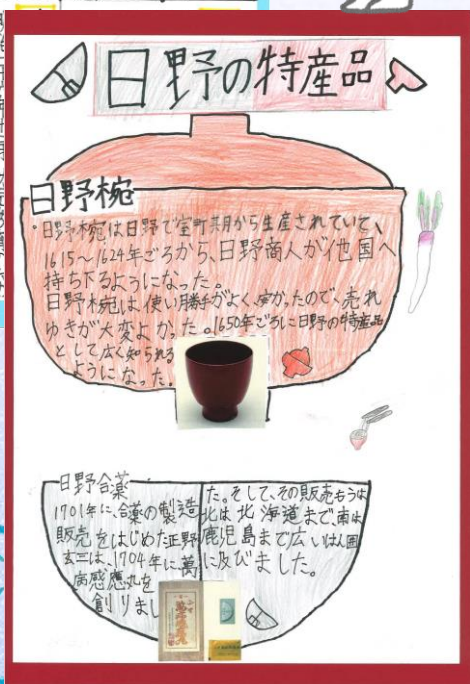 日野の特産品
日野椀
・日野椀は日野で室町期から生産されていて、
1615〜1624年ごろから、日野商人が他国へ
持ち下るようになった。
日野椀は使い勝手がよく、安かったので、売れ
ゆきが大変よかった。1650年ごろに日野の特産品
として広く知られる
ようになった。
日野合薬
1701年に、合薬の製造
販売をはじめた正野
玄三は、1704年に萬
病感應丸を
創りまし
た。そして、その販売もうは
北は北海道まで、南は
鹿児島まで広いはん囲
に及びました。